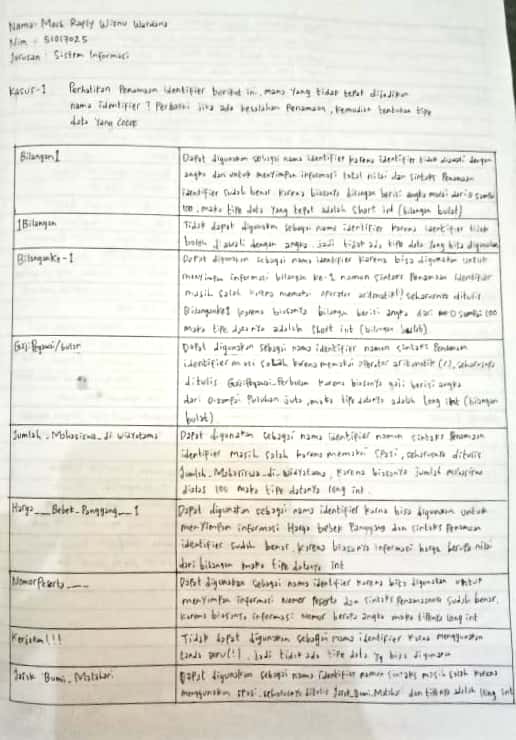 Nama: Moch Rafly Wisnu Wardana
Nim : 51017025
Jurusan : Sistem Informasi
Kasus-1 Perhatikan Penamaan identifier berikut ini, mana yang tidak tepat dijadikan
nama identifier ? Perbaiki Jika ada kesalahan Penamaan, kemudian tentukan tipe
data yang cocok
Bilangan1
Dapat digunakan sebagai nama identifier karena identifier tidak diawali dengan
angka dan untuk menyimpan informasi total nilai dan sintaks Penamaan
identifier sudah benar karena biasanya bilangan berisi angka mulai dari 0 sampai
100, maka tipe data yang tepat adalah short int (bilangan bulat)
1Bilangan
Tidak dapat digunakan sebagai nama identifier karena identifier tidak
boleh diawali dengan angka. Jadi tidak ada tipe data yang bisa digunakan
BilanganKe-1
Dapat digunakan sebagai nama identifier karena bisa digunakan untuk
menyimpan informasi bilangan ke-1 namun sintaks Penamaan identifier
masih salah karena memakai operator aritmatik seharusnya ditulis
BilanganKe1 karena biasanya bilangan berisi angka dari 0 sampai 100
maka tipe datanya adalah short int (bilangan bulat)
Gaji/bulan
Dapat digunakan sebagai nama identifier namun sintaks Penamaan
identifier masi salah karena memakai operator aritmatik (/), seharusnya
ditulis karena biasanya gaji berisi angka
dari 0 sampai Puluhan Juta, maka tipe datanya adalah long int (bilangan
bulat)
Jumlah_Mahasiswa_di widyatama
Dapat digunakan sebagai nama identifier namun sintaks Penamaan
identifier masih salah karena memakai spasi, seharusnya ditulis
Jumlah_Mahasiswa_di_Widyatama, karena biasanya jumlah mahasiswa
diatas 100 maka tipe datanya long int.
Harga___Bebek_Panggang__1
Dapat digunakan sebagai nama identifier karna bisa digunakan untuk
menyimpan informasi Harga bebek Panggang dan sintaks Penamaan
identifier sudah benar, karena biasanya informasi harga berupa nilai
dari bilangan maka tipe datanya int
NomorPeserta____
Dapat digunakan sebagai nama identifier karena bisa digunakan untuk
menyimpan informasi Nomor Peserta dan sintaks Penamaannya sudah benar,
karena biasanya informasi Nomor berupa angka maka tifenya long int
Kerjasam(!!
Tidak dapat digunakan sebagai nama identifier karena menggunakan
tanda seru(!), Jadi tidak ada tipe data yg bisa digunakan
Jarak Bumi_Matahari
Dapat digunakan sebagai nama identifier namun sintaks masih salah karena
menggunakan spasi, seharusnya ditulis Jarak_Bumi_Matahari dan tifenya adalah long int